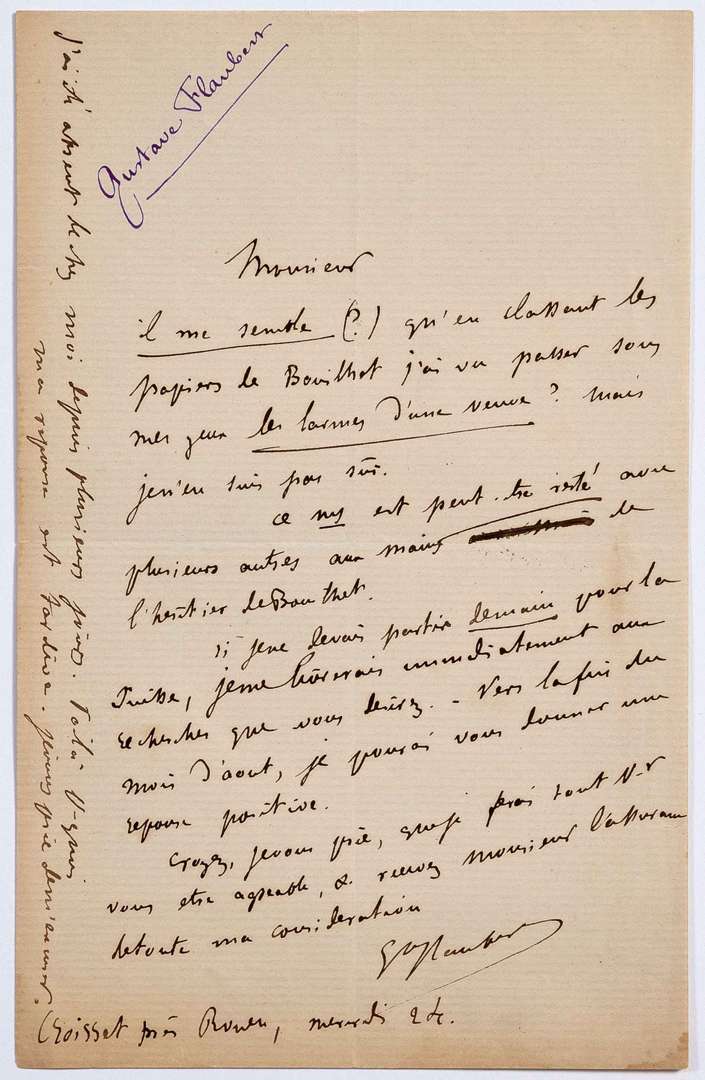 Gustave Flaubert
Monsieur
il me semble (?) qu'en classant les
papiers de Bouilhet j'ai vu passer sous
mes yeux les larmes d'une veuve ? Mais
je n'en suis pas sûr.
ce ms est peut-être resté avec
plusieurs autres aux mains de
l'héritier de Bouilhet.
si je ne devais partir demain pour la
Suisse, je me livrerais immédiatement aux
recherches que vous désirez. - Vers la fin du
mois d'aout, je pourai vous donner une
reponse positive.
Croyez, je vous prie, que je ferai tout pr
vous etre agreable, & recevez Monsieur l'assurance
de toute ma consideration
Gve Flaubert
Croisset près Rouen, mercredi 24.
J'ai été absent de chez moi depuis plusieurs jours. Voilà pquoi
ma reponse est tardive. je vous prie de m'excuser.